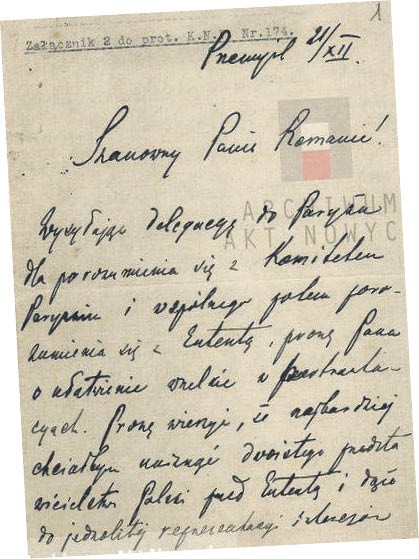 1
Załącznik 2 do prot. K.N. Nr.174.
Przemyśl 21/XII.
Szanowny Panie Romanie!
ARCHIWUM
AKT NOWYC
Wysyłając delegację do Paryża
dla porozumienia się z Komitetem
Paryskim i wspólnego potem poro-
zumienia się z Ententą, proszę Pana
o ułatwienie wszelkie w pertrakta-
cyach. Proszę wierzyć, że najbardziej
chciałbym uniknąć dwoistego przedsta
wicielstwa Polski przed Ententą i dążę
do jednolitej reprezentacyi interesów